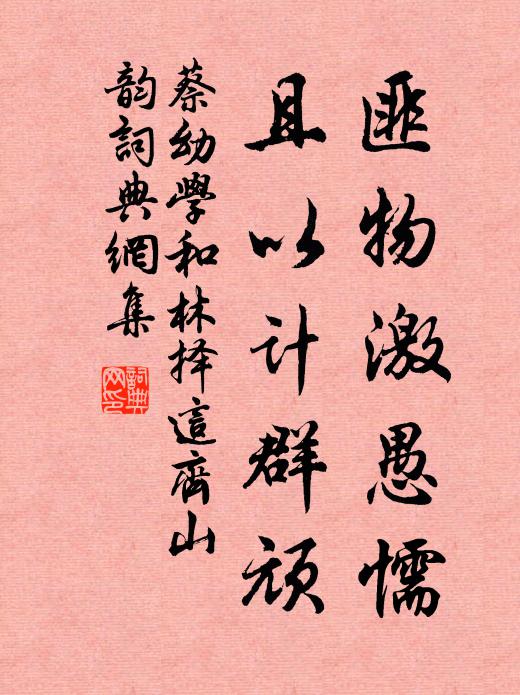 匪物激愚懦
且以计群顽
蔡幼學和林择這齊山
韵詞典網集
詞典網印